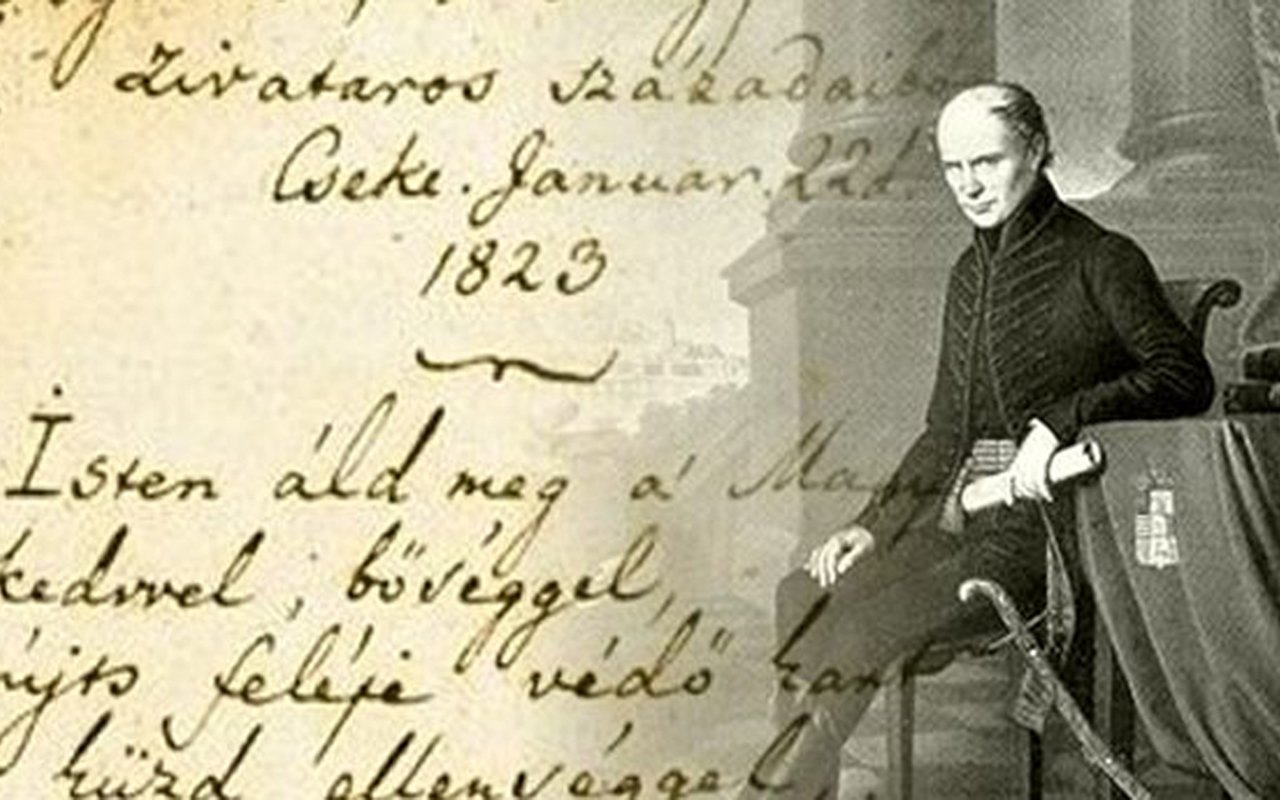 Zivataros Századaibó
Cseke. Januar. 22d.
1823
Isten áld meg a' Mag
kedvvel, bőséggel,
nyjts feléje védő kart
küzd ellenséggel,